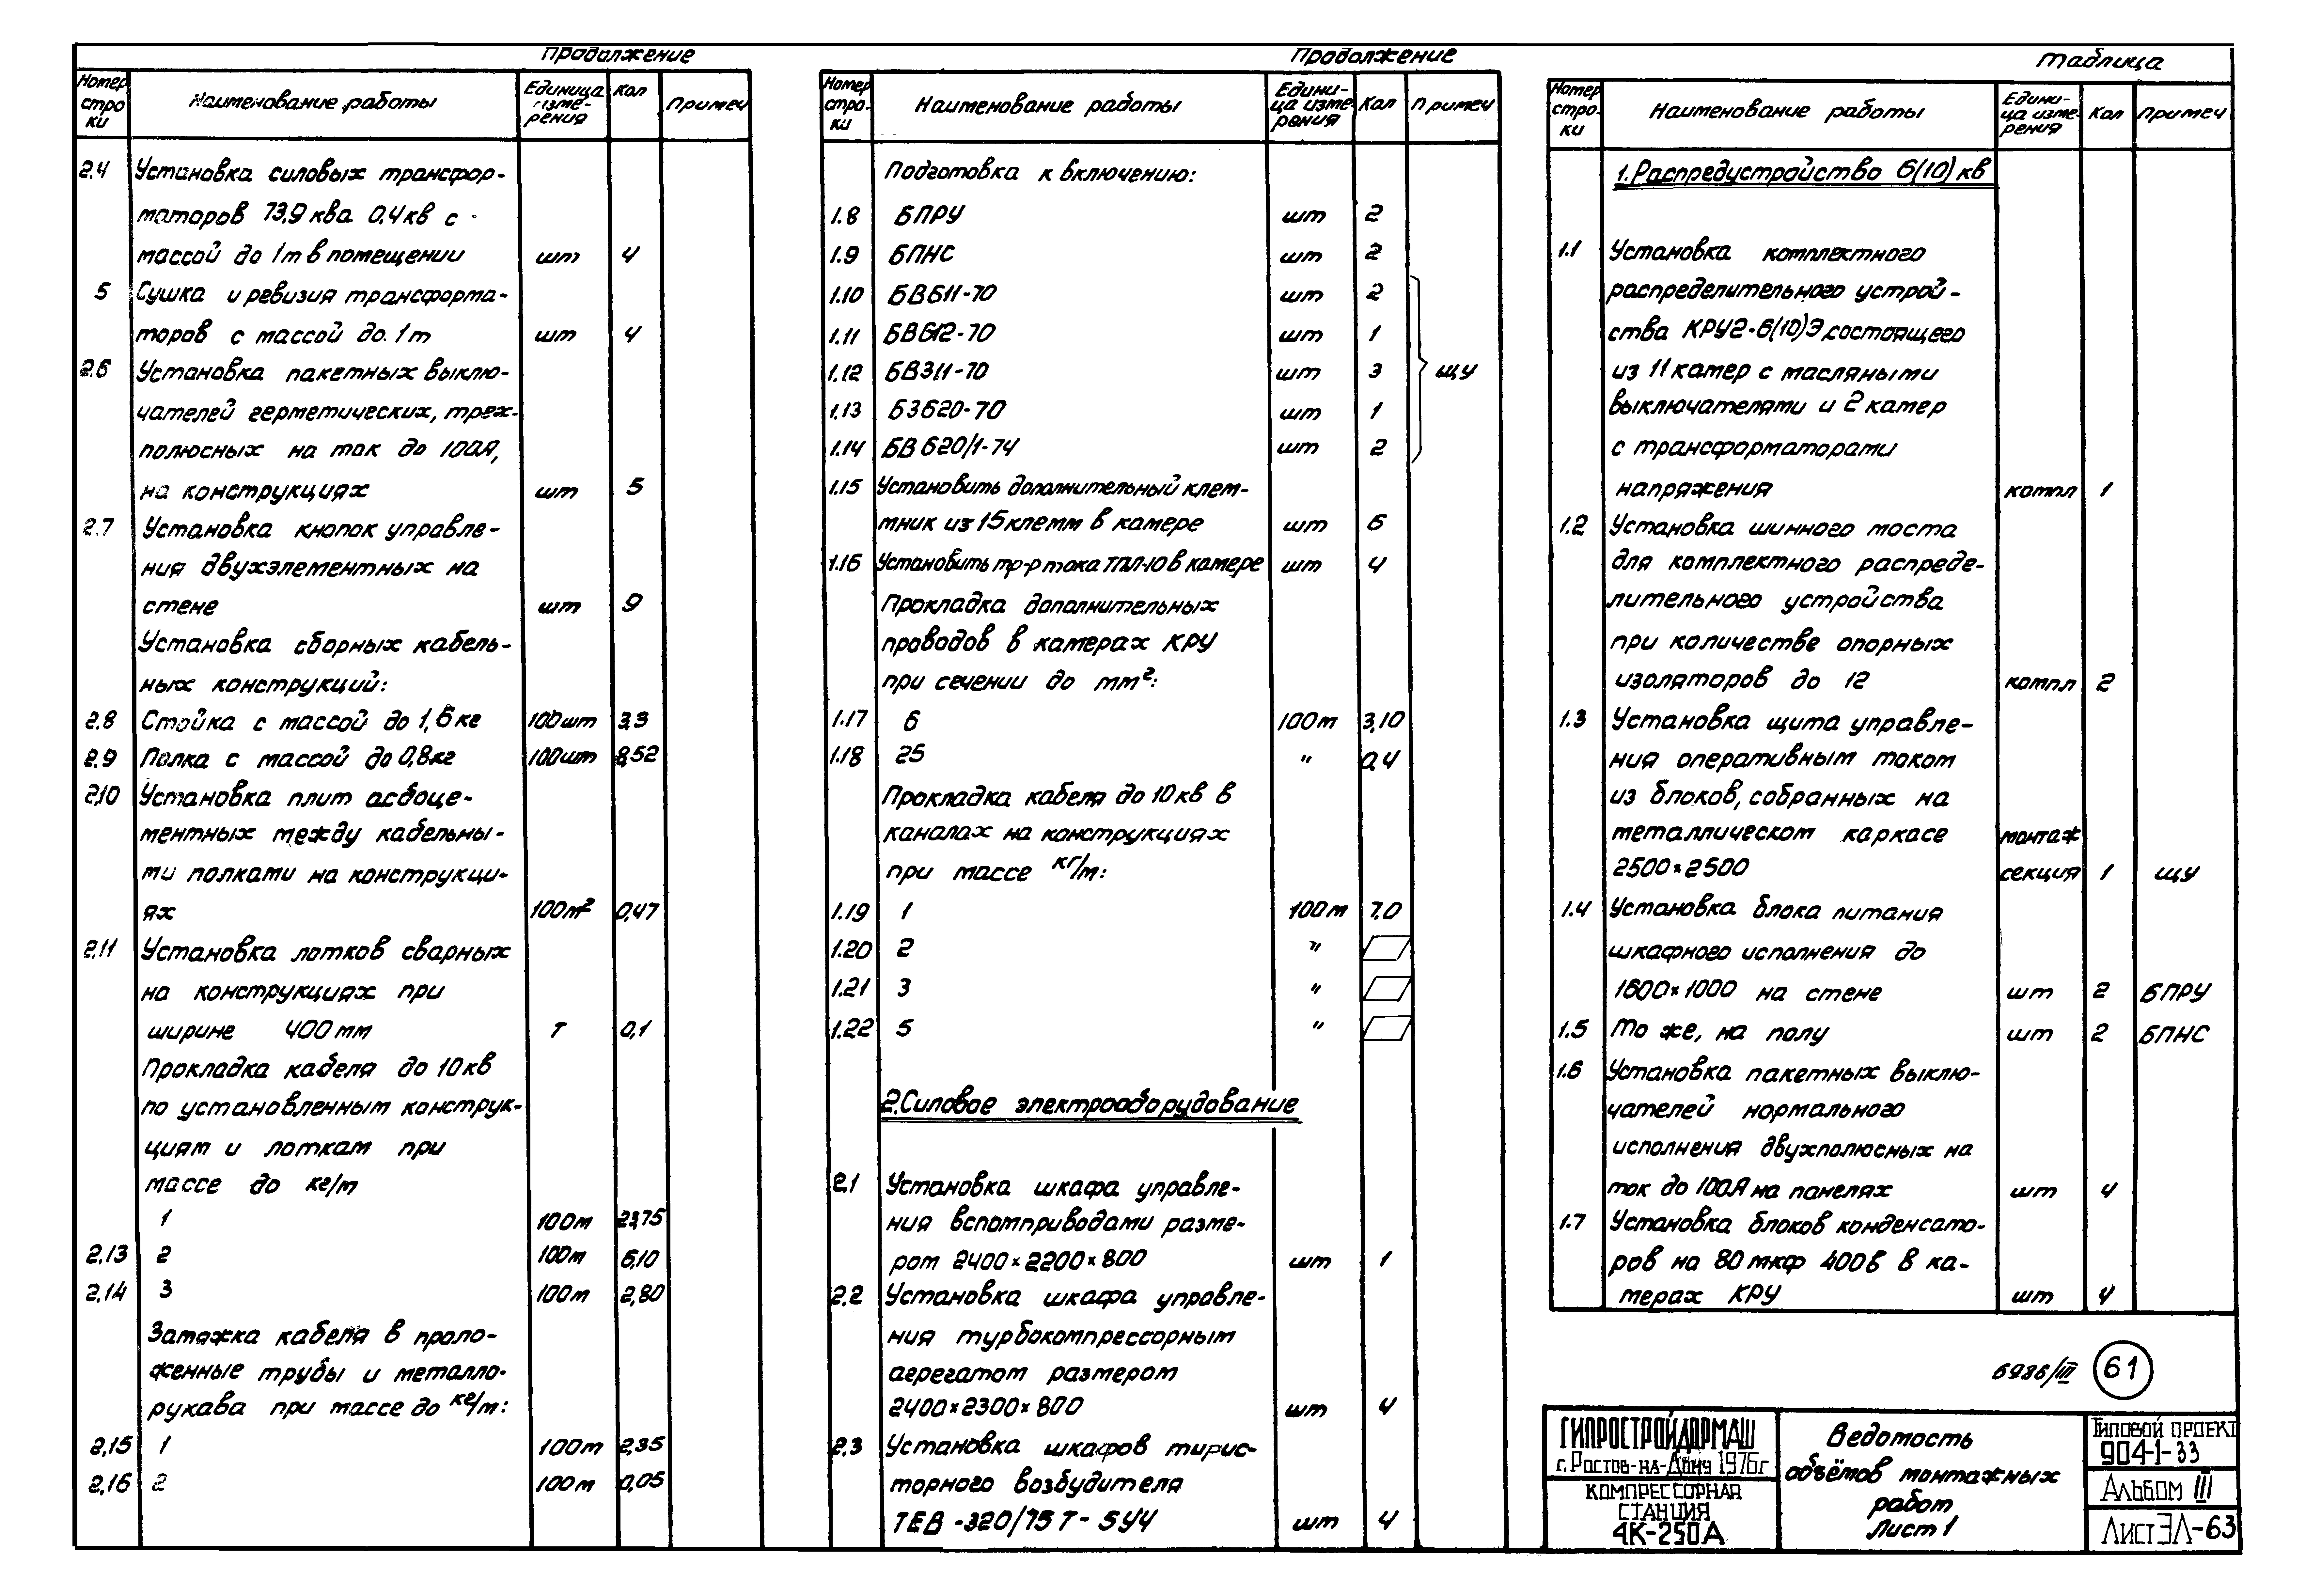 Продолжение
Номер строки | Наименование работы | Единица измерения | Кол | Примеч
2.4 Установка силовых трансфор-
маторов 73,9 ква 0,4 кв с
массой до 1т в помещении шт 4
5 Сушка и ревизия трансформа-
торов с массой до 1т шт 4
2.6 Установка пакетных выклю-
чателей герметических, трех-
полюсных на ток до 100А,
на конструкциях шт 5
2.7 Установка кнопок управле-
ния двухэлементных на
стене шт 9
Установка сборных кабель-
ных конструкций:
2.8 Стойка с массой до 1,6 кг 100шт 3,3
2.9 Полка с массой до 0,8кг 100шт 8,52
2.10 Установка плит асбоце-
ментных между кабельны-
ми полками на конструкци-
ях 100м² 0,47
2.11 Установка лотков сварных
на конструкциях при
ширине 400 мм т 0,1
Прокладка кабеля до 10 кв
по установленным конструк-
циям и лоткам при
массе до кг/м
1 100м 23,75
2.13 2 100м 6,10
2.14 3 100м 2,80
Затяжка кабеля в проло-
женные трубы и металло-
рукава при массе до кг/м:
2,15 1 100м 2,35
2,16 2 100м 0,05
Продолжение
Номер стро-ки | Наименование работы | Едини-ца измерения | Кол | Примеч
Подготовка к включению:
1.8 БПРУ шт 2
1.9 БПНС шт 2
1.10 БВ611-70 шт 2
1.11 БВ612-70 шт 1
1.12 БВ311-70 шт 3 ЩУ
1.13 БЗ620-70 шт 1
1.14 БВ 620/1-74 шт 2
1.15 Установить дополнительный клем-
тник из 15 клемм в камере шт 6
1.16 Установить тр-р тока ТПЛ-10 в камере шт 4
Прокладка дополнительных
проводов в камерах КРУ
при сечении до мм²:
1.17 6 100м 3,10
1.18 25 " 0,4
Прокладка кабеля до 10 кв в
каналах на конструкциях
при массе кг/м:
1.19 1 100м 7.0
1.20 2 "
1.21 3 "
1.22 5 "
2.Силовое электрооборудование
2.1 Установка шкафа управле-
ния вспомприводами разме-
ром 2400×2200×800 шт 1
2.2 Установка шкафа управле-
ния турбокомпрессорным
агрегатом размером
2400×2300×800 шт 4
2.3 Установка шкафов тирис-
торного возбудителя
ТЕВ-320/75Т-5У4 шт 4
Таблица
Номер стро-ки | Наименование работы | Едини-ца изме-рения | Кол | Примеч
1.Распредустройство 6(10) кв
1.1 Установка комплектного
распределительного устрой-
ства КРУ2-6(10)Э, состоящего
из 11 камер с масляными
выключателями и 2 камер
с трансформаторами
напряжения компл 1
1.2 Установка шинного моста
для комплектного распреде-
лительного устройства
при количестве опорных
изоляторов до 12 компл 2
1.3 Установка щита управле-
ния оперативным током
из блоков, собранных на
металлическом каркасе монтаж
2500×2500 секция 1 ЩУ
1.4 Установка блока питания
шкафного исполнения до
1600×1000 на стене шт 2 БПРУ
1.5 То же, на полу шт 2 БПНС
1.6 Установка пакетных выклю-
чателей нормального
исполнения двухполюсных на
ток до 100А на панелях шт 4
1.7 Установка блоков конденсато-
ров на 80 мкф 400в в ка-
мерах КРУ шт 4
6986/III 61
ГИПРОСТРОЙДОРМАШ
г. Ростов-на-Дону 1976г
КОМПРЕССОРНАЯ
СТАНЦИЯ
4К-250А
Ведомость
объёмов монтажных
работ
Лист 1
Типовой проект
904-1-33
Альбом III
Лист ЭЛ-63